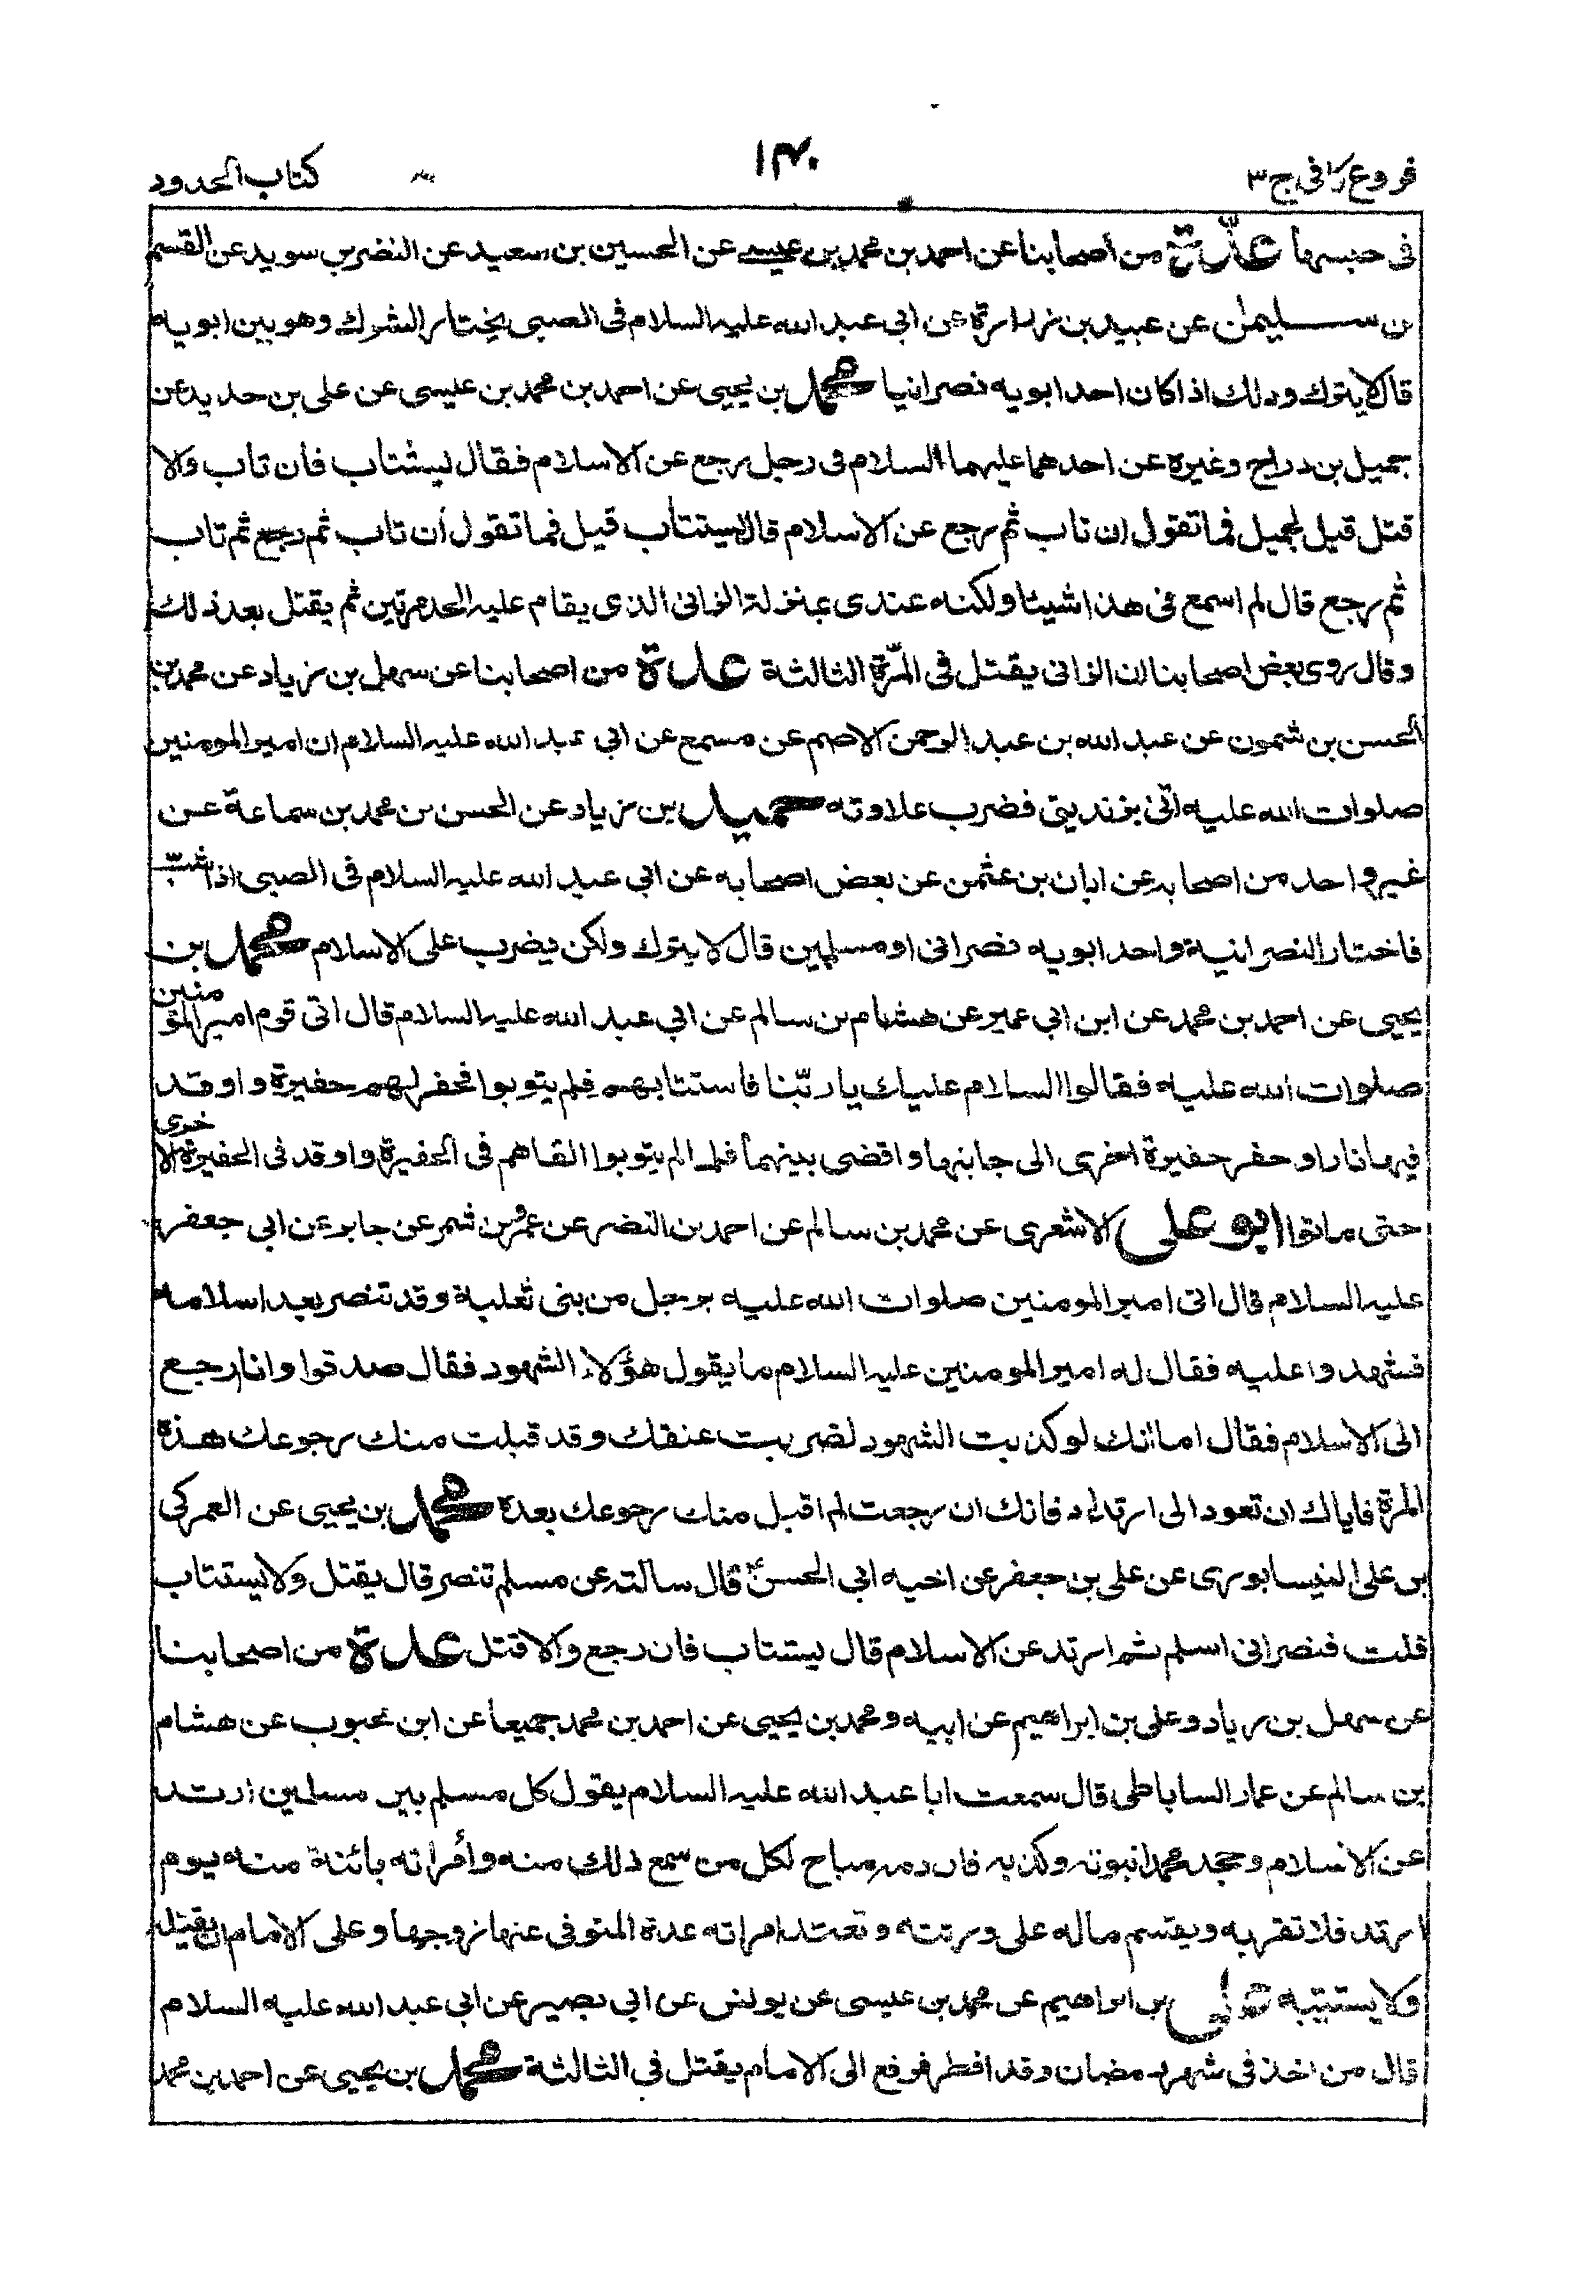 فروع كافى ج ٣
١٣٠
كتاب الحدود
فى حبسها عدّة من اصحابنا عن احمد بن محمد بن عيسى عن الحسين بن سعيد عن النضر بن سويد عن القسم
بن سليمان عن عبيد بن زرارة عن ابى عبد الله عليه السلام فى الصبى يختار الشرك وهو بين ابويه
قال لا يترك وذلك اذا كان احد ابويه نصرانيا محمد بن يحيى عن احمد بن محمد بن عيسى عن على بن حديد عن
جميل بن دراج وغيره عن احدهما عليهما السلام فى رجل رجع عن الاسلام فقال يستتاب فان تاب والا
قتل قيل لجميل فما تقول ان تاب ثم رجع عن الاسلام قال يستتاب قيل فما تقول ان تاب ثم رجع ثم تاب
ثم رجع قال لم اسمع فى هذا شيئا ولكنه عندى بمنزلة الزانى الذى يقام عليه الحد مرتين ثم يقتل بعد ذلك
وقال روى بعض اصحابنا ان الزانى يقتل فى المرّة الثالثة عدة من اصحابنا عن سهل بن زياد عن محمد بن
الحسن بن شمون عن عبد الله بن عبد الرحمن الاصم عن مسمع عن ابى عبد الله عليه السلام ان امير المومنين
صلوات الله عليه اتى بزنديق فضرب علاوته حميد بن زياد عن الحسن بن محمد بن سماعة عن
غير واحد من اصحابه عن ابان بن عثمن عن بعض اصحابه عن ابى عبد الله عليه السلام فى الصبى اذا شبّ
فاختار النصرانية واحد ابويه نصرانى او مسلمين قال لا يترك ولكن يضرب على الاسلام محمد بن
يحيى عن احمد بن محمد عن ابن ابى عمير عن هشام بن سالم عن ابى عبد الله عليه السلام قال اتى قوم امير المؤمنين
صلوات الله عليه فقالوا السلام عليك يا ربّنا فاستتابهم فلم يتوبوا فحفر لهم حفيرة واوقد
فيها نارا وحفر حفيرة اخرى الى جانبها وافضى بينهما فلما لم يتوبوا القاهم فى الحفيرة واوقد فى الحفيرة الاخرى
حتى ماتوا ابو على الاشعرى عن محمد بن سالم عن احمد بن النضر عن عمرو بن شمر عن جابر عن ابى جعفر
عليه السلام قال اتى امير المومنين صلوات الله عليه برجل من بنى ثعلبة وقد تنصر بعد اسلامه
فشهدوا عليه فقال له امير المومنين عليه السلام ما يقول هؤلاء الشهود فقال صدقوا وانا ارجع
الى الاسلام فقال اما انك لو كذبت الشهود لضربت عنقك وقد قبلت منك رجوعك هذه
المرة فاياك ان تعود الى ارتداد فانك ان رجعت لم اقبل منك رجوعك بعده محمد بن يحيى عن العمركى
بن على النيسابورى عن على بن جعفر عن اخيه ابى الحسن ع قال سالته عن مسلم تنصر قال يقتل ولا يستتاب
قلت فنصرانى اسلم ثم ارتد عن الاسلام قال يستتاب فان رجع والا قتل عدة من اصحابنا
عن سهل بن زياد وعلى بن ابراهيم عن ابيه ومحمد بن يحيى عن احمد بن محمد جميعا عن ابن محبوب عن هشام
بن سالم عن عمار الساباطى قال سمعت ابا عبد الله عليه السلام يقول كل مسلم بين مسلمين ارتد
عن الاسلام وجحد محمدا نبوته وكذبه فان دمه مباح لكل من سمع ذلك منه وأمراته بائنة منه يوم
ارتد فلا تقربه ويقسم ماله على ورثته وتعتد امراته عدة المتوفى عنها زوجها وعلى الامام ان يقتله
ولا يستتيبه على بن ابراهيم عن محمد بن عيسى عن يونس عن ابى بصير عن ابى عبد الله عليه السلام
قال من اخذ فى شهر رمضان وقد افطر فرفع الى الامام يقتل فى الثالثة محمد بن يحيى عن احمد بن محمد